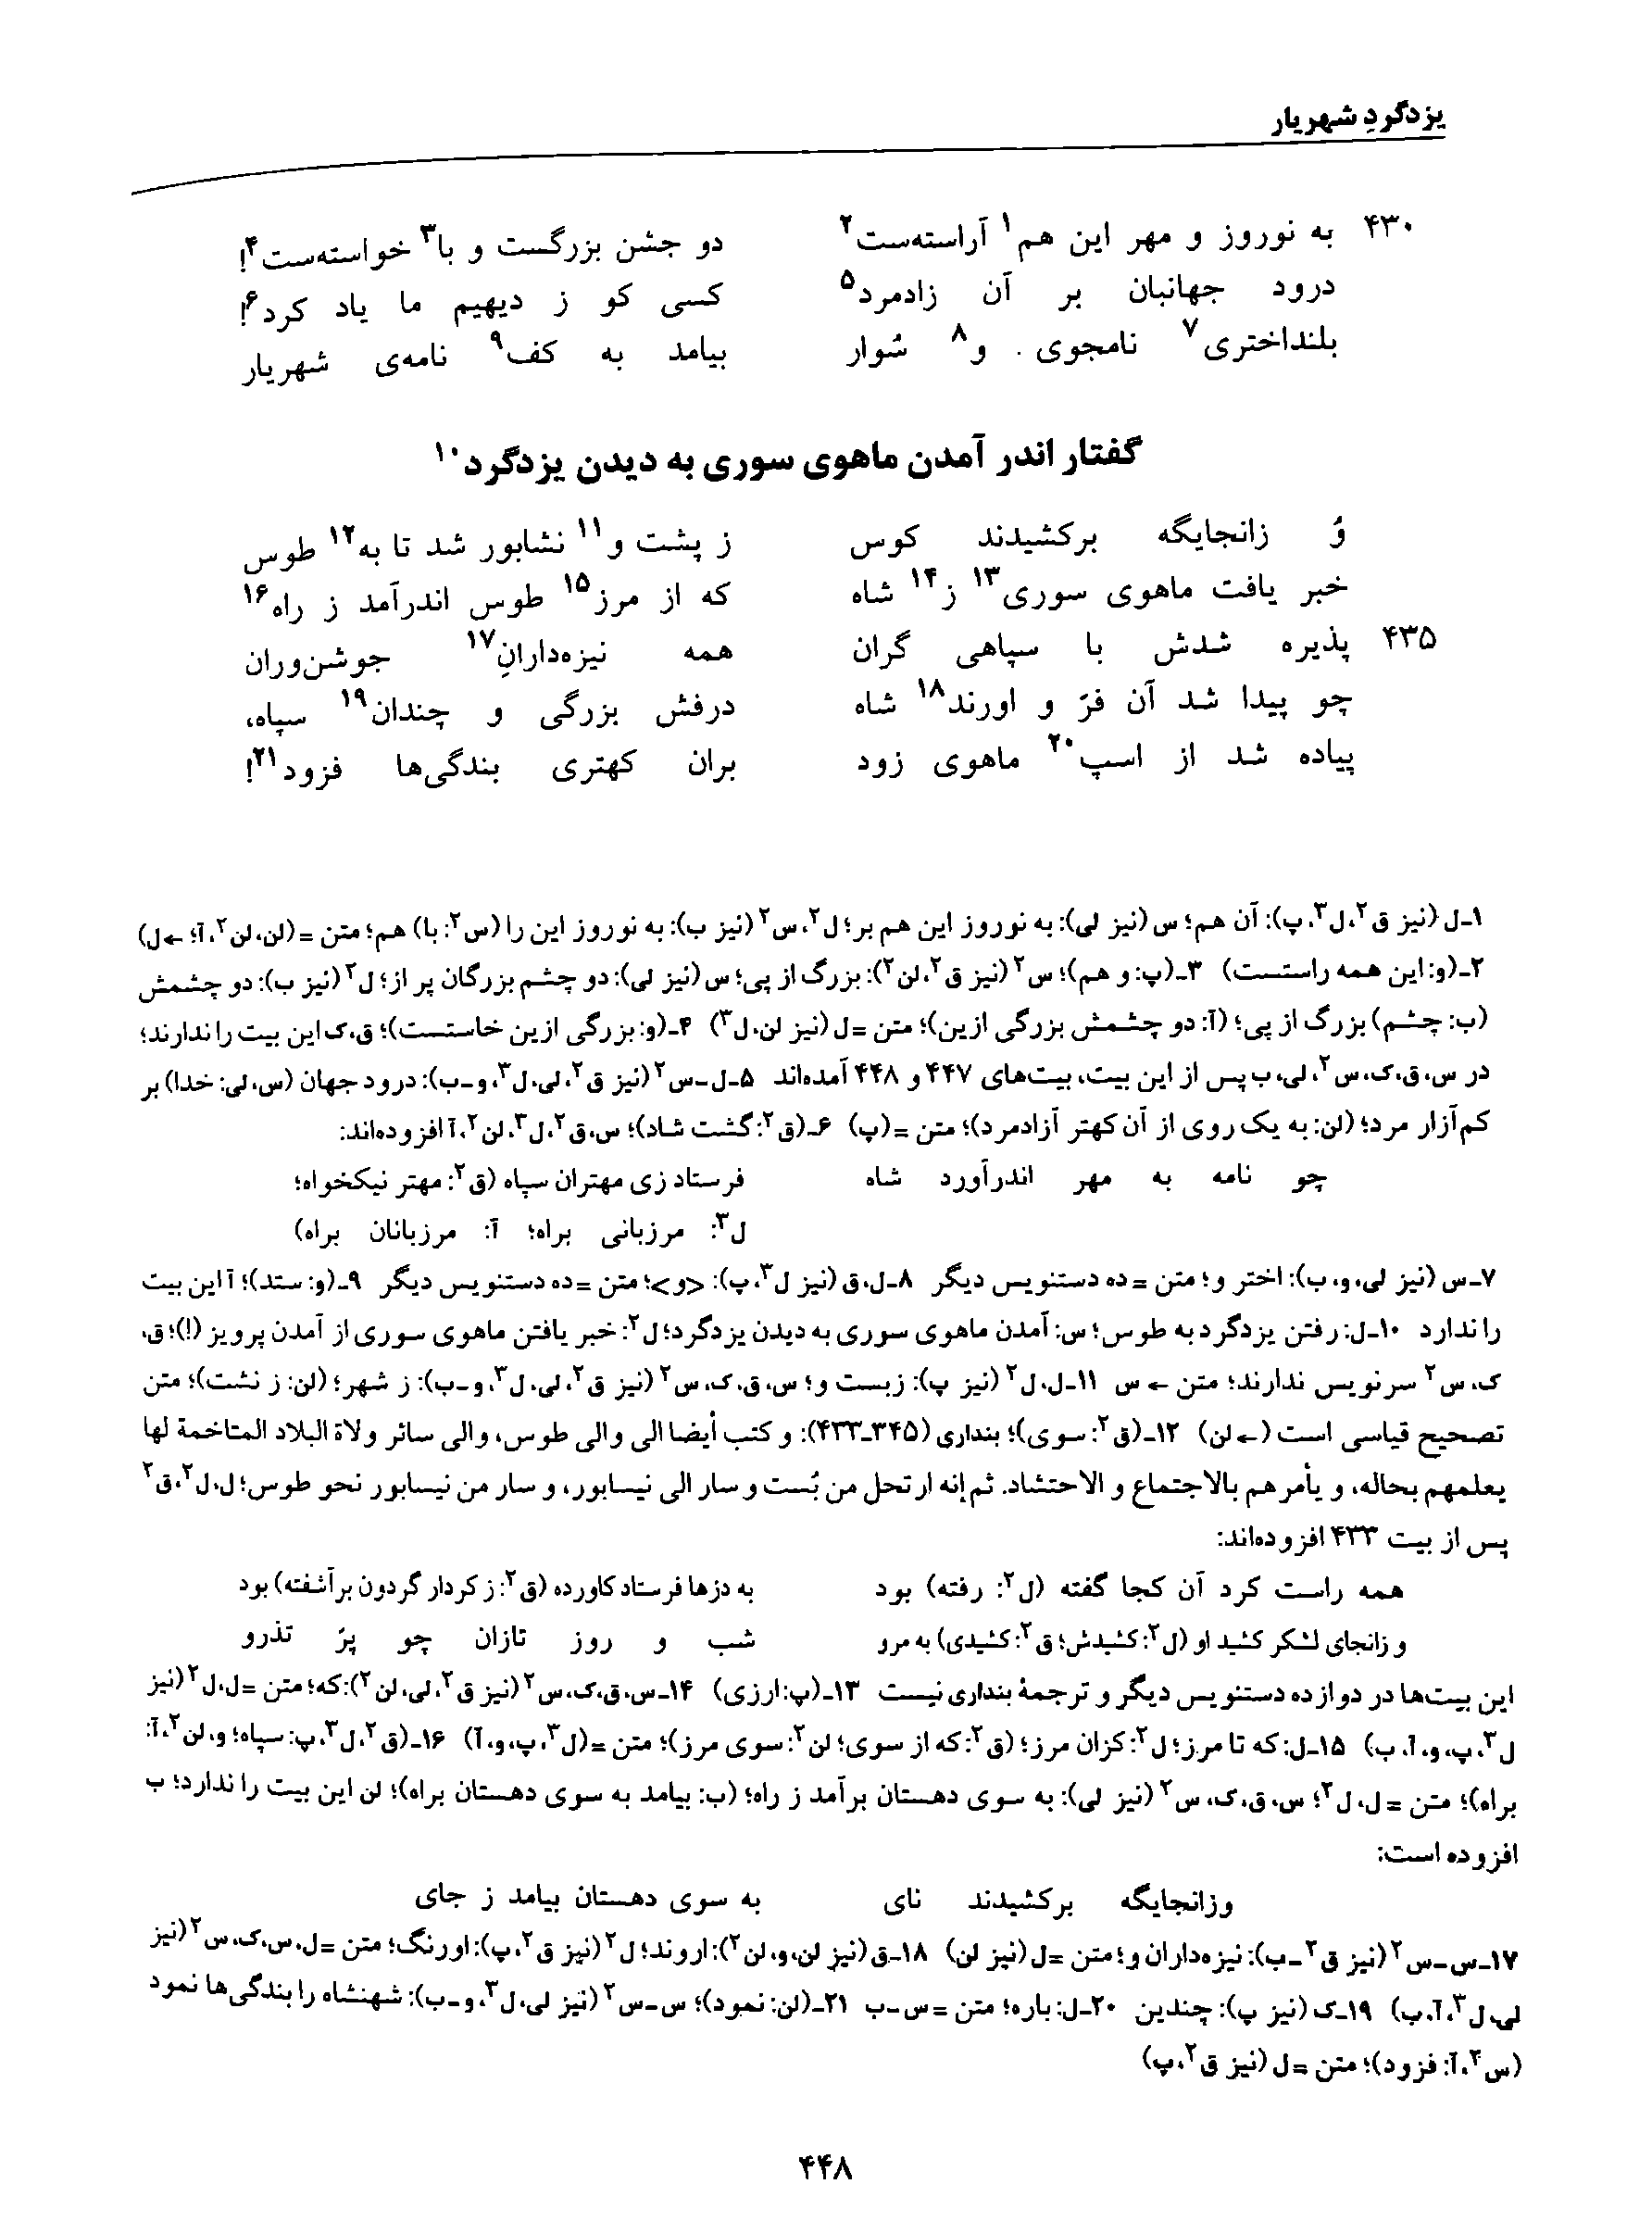 یزدگردِ شهریار
۴۳۰ به نوروز و مهر این هم¹ آراسته‌ست² دو جشن بزرگست و با³ خواسته‌ست⁴!
درود جهانبان بر آن زادمرد⁵ کسی کو ز دیهیم ما یاد کرد⁶!
بلنداختری⁷ نامجوی و⁸ سُوار بیامد به کف⁹ نامه‌ی شهریار
گفتار اندر آمدن ماهوی سوری به دیدن یزدگرد¹⁰
وُ زانجایگه برکشیدند کوس ز پشت و¹¹ نشابور شد تا به¹² طوس
خبر یافت ماهوی سوری¹³ ز¹⁴ شاه که از مرز¹⁵ طوس اندرآمد ز راه¹⁶
۴۳۵ پذیره شدش با سپاهی گران همه نیزه‌دارانِ¹⁷ جوشن‌وران
چو پیدا شد آن فرّ و اورند¹⁸ شاه درفش بزرگی و چندان¹⁹ سپاه،
پیاده شد از اسپ²⁰ ماهوی زود بران کهتری بندگی‌ها فزود²¹!
۱ـ ل (نیز ق²، ل³، پ): آن هم؛ س (نیز لی): به نوروز این هم بر؛ ل²، س² (نیز ب): به نوروز این را (س²: با) هم؛ متن = (لن، لن²، آ؛ ← ل)
۲ـ (و: این همه راستست) ۳ـ (پ: و هم)؛ س² (نیز ق²، لن²): بزرگ از پی؛ س (نیز لی): دو چشم بزرگان پر از؛ ل² (نیز ب): دو چشمش
(ب: چشم) بزرگ از پی؛ (آ: دو چشمش بزرگی ازین)؛ متن = ل (نیز لن، ل³) ۴ـ (و: بزرگی ازین خاستست)؛ ق، ک این بیت را ندارند؛
در س، ق، ک، س²، لی، ب پس از این بیت، بیت‌های ۴۴۷ و ۴۴۸ آمده‌اند ۵ـ ل ـ س² (نیز ق²، لی، ل³، و ـ ب): درود جهان (س، لی: خدا) بر
کم‌آزار مرد؛ (لن: به یک روی از آن کهتر آزادمرد)؛ متن = (پ) ۶ـ (ق²: گشت شاد)؛ س، ق²، ل³، لن²، آ افزوده‌اند:
چو نامه به مهر اندرآورد شاه فرستاد زی مهتران سپاه (ق²: مهتر نیکخواه؛
ل³: مرزبانی براه؛ آ: مرزبانان براه)
۷ـ س (نیز لی، و، ب): اختر و؛ متن = ده دستنویس دیگر ۸ـ ل، ق (نیز ل³، پ): <و>؛ متن = ده دستنویس دیگر ۹ـ (و: ستد)؛ آ این بیت
را ندارد ۱۰ـ ل: رفتن یزدگرد به طوس؛ س: آمدن ماهوی سوری به دیدن یزدگرد؛ ل²: خبر یافتن ماهوی سوری از آمدن پرویز (!)؛ ق،
ک، س² سرنویس ندارند؛ متن ← س ۱۱ـ ل، ل² (نیز پ): ز بست و؛ س، ق، ک، س² (نیز ق²، لی، ل³، و ـ ب): ز شهر؛ (لن: ز نشت)؛ متن
تصحیح قیاسی است (← لن) ۱۲ـ (ق²: سوی)؛ بنداری (۳۴۵ـ۴۳۳): و کتب أیضا الی والی طوس، والی سائر ولاة البلاد المتاخمة لها
یعلمهم بحاله، و یأمرهم بالاجتماع و الاحتشاد. ثم إنه ارتحل من بُست و سار الی نیسابور، و سار من نیسابور نحو طوس؛ ل، ل²، ق²
پس از بیت ۴۳۳ افزوده‌اند:
همه راست کرد آن کجا گفته (ل²: رفته) بود به دزها فرستاد کاورده (ق²: ز کردار گردون برآشفته) بود
و زانجای لشکر کشید او (ل²: کشیدش؛ ق²: کشیدی) به مرو شب و روز تازان چو پرّ تذرو
این بیت‌ها در دوازده دستنویس دیگر و ترجمهٔ بنداری نیست ۱۳ـ (پ: ارزی) ۱۴ـ س، ق، ک، س² (نیز ق²، لی، لن²): که؛ متن = ل، ل² (نیز
ل³، پ، و، آ، ب) ۱۵ـ ل: که تا مرز؛ ل²: کزان مرز؛ (ق²: که از سوی؛ لن²: سوی مرز)؛ متن = (ل³، پ، و، آ) ۱۶ـ (ق²، ل³، پ: سپاه؛ و، لن²، آ:
براه)؛ متن = ل، ل²؛ س، ق، ک، س² (نیز لی): به سوی دهستان برآمد ز راه؛ (ب: بیامد به سوی دهستان براه)؛ لن این بیت را ندارد؛ ب
افزوده است:
وزانجایگه برکشیدند نای به سوی دهستان بیامد ز جای
۱۷ـ س ـ س² (نیز ق² ـ ب): نیزه‌داران و؛ متن = ل (نیز لن) ۱۸ـ ق (نیز لن، و، لن²): اروند؛ ل² (نیز ق²، پ): اورنگ؛ متن = ل، س، ک، س² (نیز
لی، ل³، آ، ب) ۱۹ـ ک (نیز پ): چندین ۲۰ـ ل: باره؛ متن = س ـ ب ۲۱ـ (لن: نمود)؛ س ـ س² (نیز لی، ل³، و ـ ب): شهنشاه را بندگی‌ها نمود
(س²، آ: فزود)؛ متن = ل (نیز ق²، پ)
۴۴۸